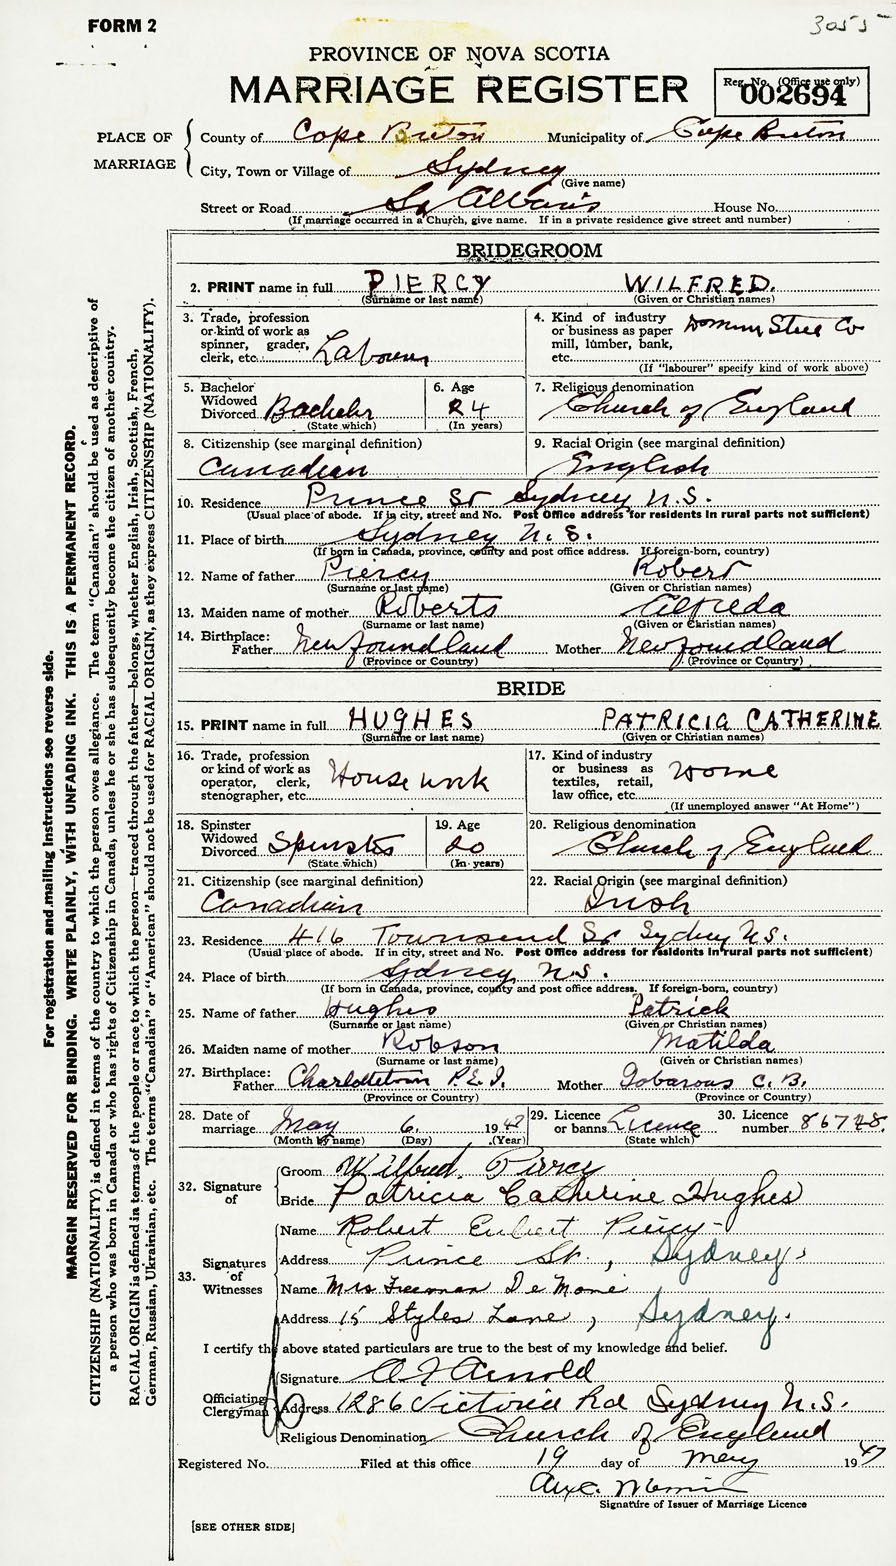 FORM 2
3055
PROVINCE OF NOVA SCOTIA
MARRIAGE REGISTER
Reg. No. (Office use only)
002694
PLACE OF MARRIAGE
County of Cape Breton Municipality of Cape Breton
City, Town or Village of Sydney
(Give name)
Street or Road St Albans House No.
(If marriage occurred in a Church, give name. If in a private residence give street and number)
BRIDEGROOM
2. PRINT name in full PIERCY WILFRED.
(Surname or last name) (Given or Christian names)
3. Trade, profession or kind of work as spinner, grader, clerk, etc. Labourer
4. Kind of industry or business as paper mill, lumber, bank, etc. Domin Steel Co
(If "labourer" specify kind of work above)
5. Bachelor Widowed Divorced Bachelor
(State which)
6. Age 24
(In years)
7. Religious denomination
Church of England
8. Citizenship (see marginal definition)
Canadian
9. Racial Origin (see marginal definition)
English
10. Residence Prince St Sydney N.S.
(Usual place of abode. If in city, street and No. Post Office address for residents in rural parts not sufficient)
11. Place of birth Sydney N.S.
(If born in Canada, province, county and post office address. If foreign-born, country)
12. Name of father Piercy Robert
(Surname or last name) (Given or Christian names)
13. Maiden name of mother Roberts Alfreda
(Surname or last name) (Given or Christian names)
14. Birthplace:
Father Newfoundland Mother Newfoundland
(Province or Country) (Province or Country)
BRIDE
15. PRINT name in full HUGHES PATRICIA CATHERINE
(Surname or last name) (Given or Christian names)
16. Trade, profession or kind of work as operator, clerk, stenographer, etc. Housework
17. Kind of industry or business as textiles, retail, law office, etc. Home
(If unemployed answer "At Home")
18. Spinster Widowed Divorced Spinster
(State which)
19. Age 20
(In years)
20. Religious denomination
Church of England
21. Citizenship (see marginal definition)
Canadian
22. Racial Origin (see marginal definition)
Irish
23. Residence 416 Townsend St Sydney N.S.
(Usual place of abode. If in city, street and No. Post Office address for residents in rural parts not sufficient)
24. Place of birth Sydney N.S.
(If born in Canada, province, county and post office address. If foreign-born, country)
25. Name of father Hughes Patrick
(Surname or last name) (Given or Christian names)
26. Maiden name of mother Robson Matilda
(Surname or last name) (Given or Christian names)
27. Birthplace:
Father Charlottetown P.E.I. Mother Gabarous C.B.
(Province or Country) (Province or Country)
28. Date of marriage May 6. 1947
(Month by name) (Day) (Year)
29. Licence or banns Licence
(State which)
30. Licence number 86748.
32. Signature of
Groom Wilfred Piercy
Bride Patricia Catherine Hughes
33. Signatures of Witnesses
Name Robert Piercy
Address Prince St., Sydney,
Name Mrs Freeman De Mone
Address 15 Styles Lane, Sydney.
I certify the above stated particulars are true to the best of my knowledge and belief.
Officiating Clergyman
Signature A F Arnold
Address 1286 Victoria Rd Sydney N.S.
Religious Denomination Church of England
Registered No. Filed at this office 19 day of May 1947
Signature of Issuer of Marriage Licence
[SEE OTHER SIDE]
For registration and mailing instructions see reverse side.
MARGIN RESERVED FOR BINDING. WRITE PLAINLY, WITH UNFADING INK. THIS IS A PERMANENT RECORD.
CITIZENSHIP (NATIONALITY) is defined in terms of the country to which the person owes allegiance. The term "Canadian" should be used as descriptive of
a person who was born in Canada or who has rights of Citizenship in Canada, unless he or she has subsequently become the citizen of another country.
RACIAL ORIGIN is defined in terms of the people or race to which the person—traced through the father—belongs, whether English, Irish, Scottish, French,
German, Russian, Ukrainian, etc. The terms "Canadian" or "American" should not be used for RACIAL ORIGIN, as they express CITIZENSHIP (NATIONALITY).